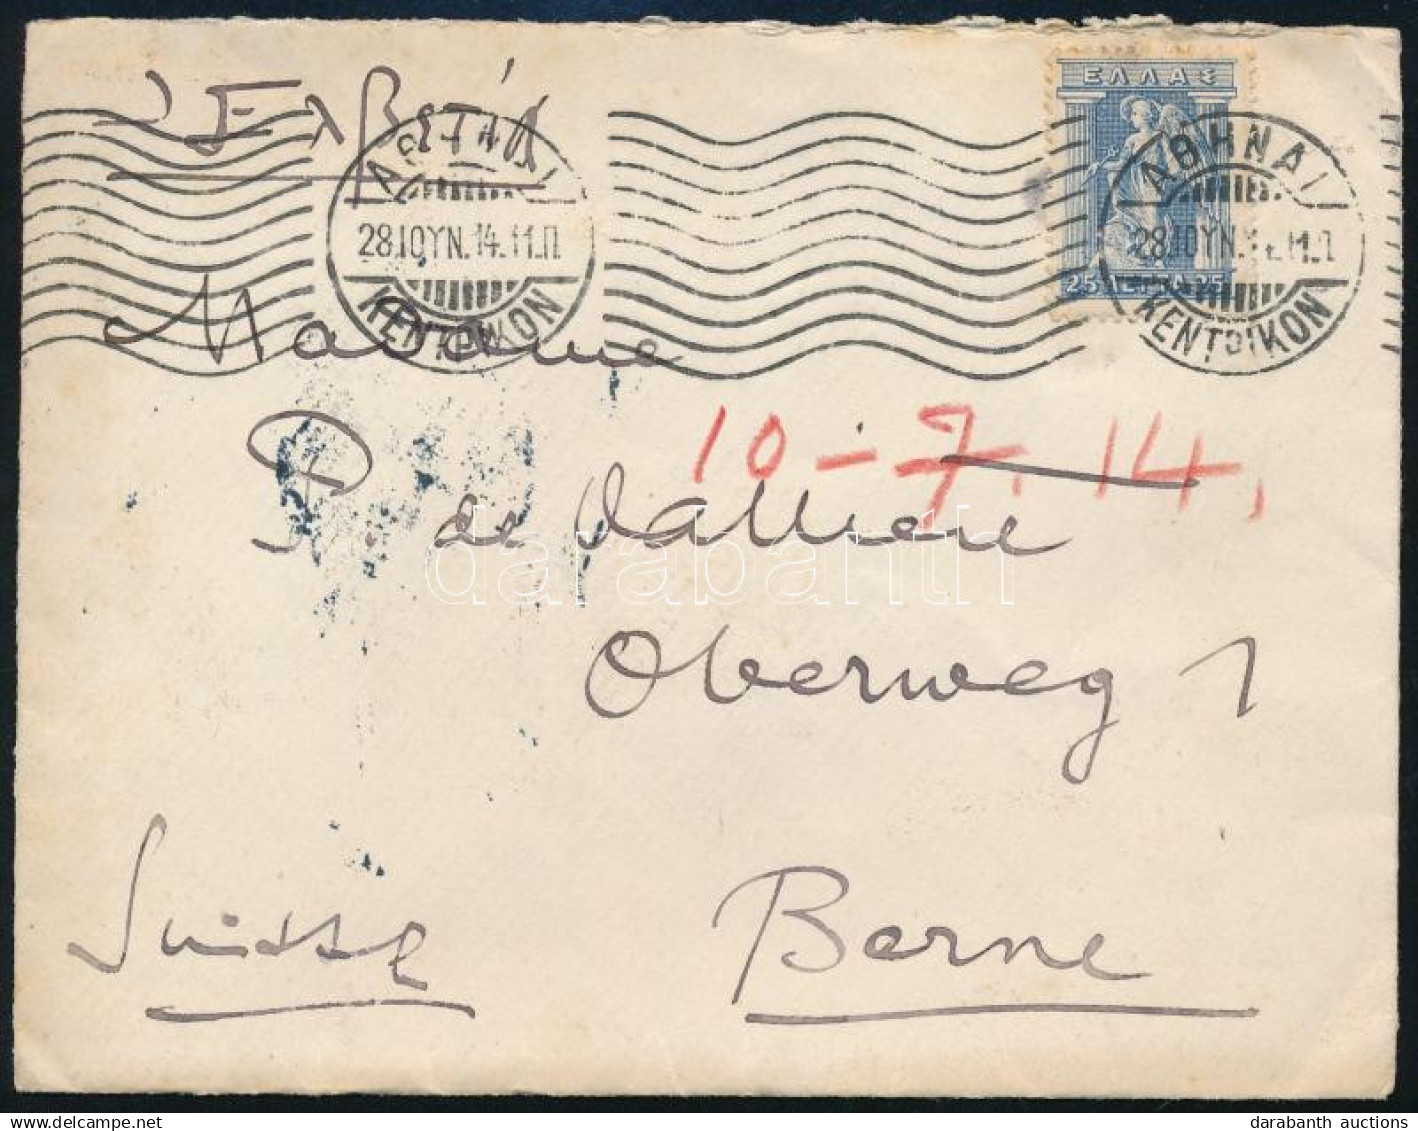 Ἑλβετία
ΕΛΛΑΣ
25 25
ΑΘΗΝΑΙ
28.ΙΟΥΝ.14.11.Π
ΚΕΝΤΡΙΚΟΝ
ΑΘΗΝΑΙ
28.ΙΟΥΝ.14.11.Π
ΚΕΝΤΡΙΚΟΝ
Madame
10-7.14.
P. de Vallière
darabanth
Oberweg 1
Berne
Suisse
darabanth auctions